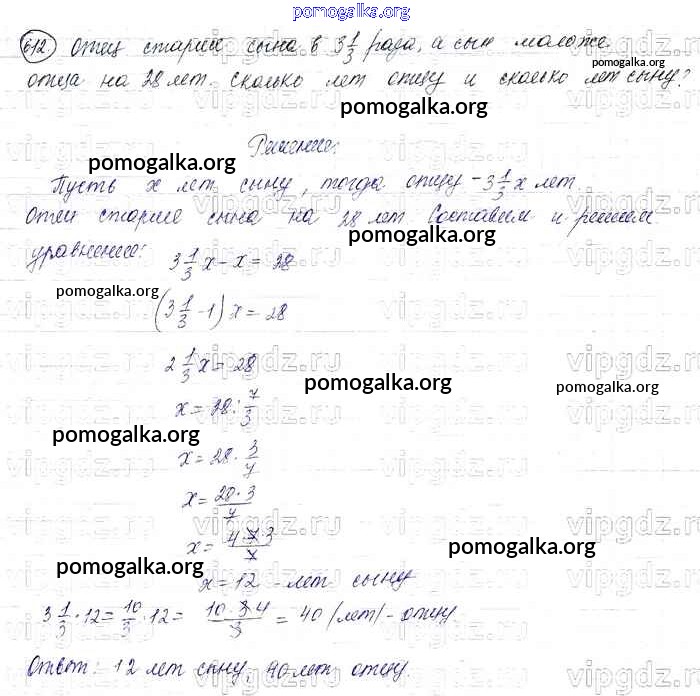 pomogalka.org
612. Отец старше сына в 3 1/3 раза, а сын моложе
отца на 28 лет. Сколько лет отцу и сколько лет сыну?
Решение:
Пусть x лет сыну, тогда отцу - 3 1/3 x лет.
Отец старше сына на 28 лет. Составим и решим
уравнение:
3 1/3 x - x = 28
(3 1/3 - 1) x = 28
2 1/3 x = 28
x = 28 : 7/3
x = 28 · 3/7
x = 28 · 3 / 7
x = 4 · 7 · 3 / 7
x = 12 - лет сыну
3 1/3 · 12 = 10/3 · 12 = 10 · 3 · 4 / 3 = 40 (лет) - отцу.
Ответ: 12 лет сыну, 40 лет отцу.
pomogalka.org
pomogalka.org
pomogalka.org
pomogalka.org
pomogalka.org
pomogalka.org
pomogalka.org
pomogalka.org
pomogalka.org
pomogalka.org
pomogalka.org
vipgdz.ru